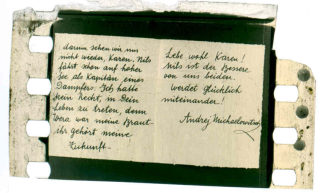 darum sehen wir uns
nicht wieder, Karen. Nils
fährt schon auf hoher
See als Kapitän eines
Dampfers. Ich hatte
kein Recht, in Dein
Leben zu treten, denn
Vera war meine Braut -
ihr gehört meine
Zukunft -
Lebe wohl Karen!
Nils ist der Bessere
von uns beiden.
Werdet glücklich
miteinander!
Andrej Michaelowitsch